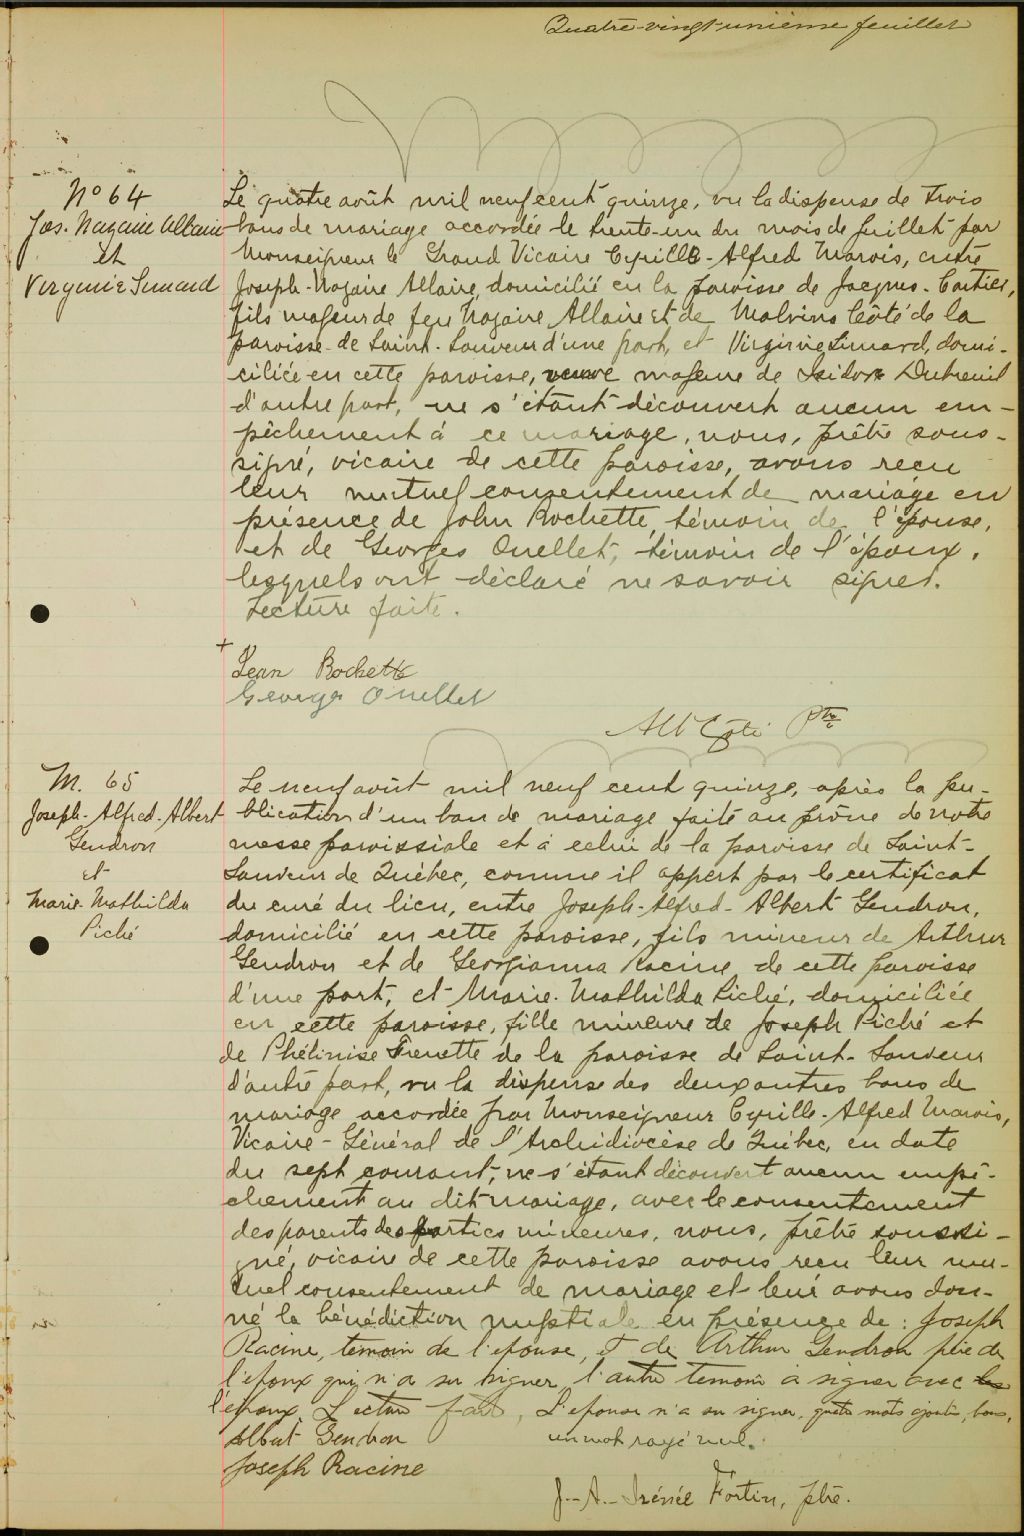 Quatre-vingt-unième feuillet
N° 64
Jos. Nazaire Allaire
et
Virginie Simard
Le quatre août mil neuf cent quinze, vu la dispense de trois
bans de mariage accordée le trente-un du mois de juillet par
Monseigneur le Grand Vicaire Cyrille-Alfred Marois, entre
Joseph-Nazaire Allaire, domicilié en la paroisse de Jacques-Cartier,
fils majeur de feu Nazaire Allaire et de Malvina Côté de la
paroisse de Saint-Sauveur d'une part, et Virginie Simard, domi-
ciliée en cette paroisse, veuve majeure de Isidore Dutreuil
d'autre part, ne s'étant découvert aucun em-
pêchement à ce mariage, nous, prêtre sous-
signé, vicaire de cette paroisse, avons reçu
leur mutuel consentement de mariage en
présence de John Rochette, témoin de l'épouse,
et de Georges Ouellet, témoin de l'époux,
lesquels ont déclaré ne savoir signer.
Lecture faite.
+
Jean Rochette
George Ouellet
Alb Côté Ptre
M. 65
Joseph-Alfred-Albert
Gendron
et
Marie-Mathilda
Piché
Le neuf août mil neuf cent quinze, après la pu-
blication d'un ban de mariage faite au prône de notre
messe paroissiale et à celui de la paroisse de Saint-
Sauveur de Québec, comme il appert par le certificat
du curé du lieu, entre Joseph-Alfred-Albert Gendron,
domicilié en cette paroisse, fils mineur de Arthur
Gendron et de Georgianna Racine de cette paroisse
d'une part, et Marie-Mathilda Piché, domiciliée
en cette paroisse, fille mineure de Joseph Piché et
de Phélinise Frenette de la paroisse de Saint-Sauveur
d'autre part, vu la dispense des deux autres bans de
mariage accordée par Monseigneur Cyrille-Alfred Marois,
Vicaire-Général de l'Archidiocèse de Québec, en date
du sept courant, ne s'étant découvert aucun empê-
chement au dit mariage, avec le consentement
des parents des parties mineures, nous, prêtre soussi-
gné, vicaire de cette paroisse avons reçu leur mu-
tuel consentement de mariage et leur avons don-
né la bénédiction nuptiale en présence de : Joseph
Racine, temoin de l'epouse, et de Arthur Gendron père de
l'epoux qui n'a su signer, l'autre temoin a signer avec les
l'époux. Lecture faite, L'epouse n'a su signer, quatre mots ajoutés, bons,
un mot rayé nul.
Albert Gendron
Joseph Racine
J.-A.-Irénée Fortin, ptre.